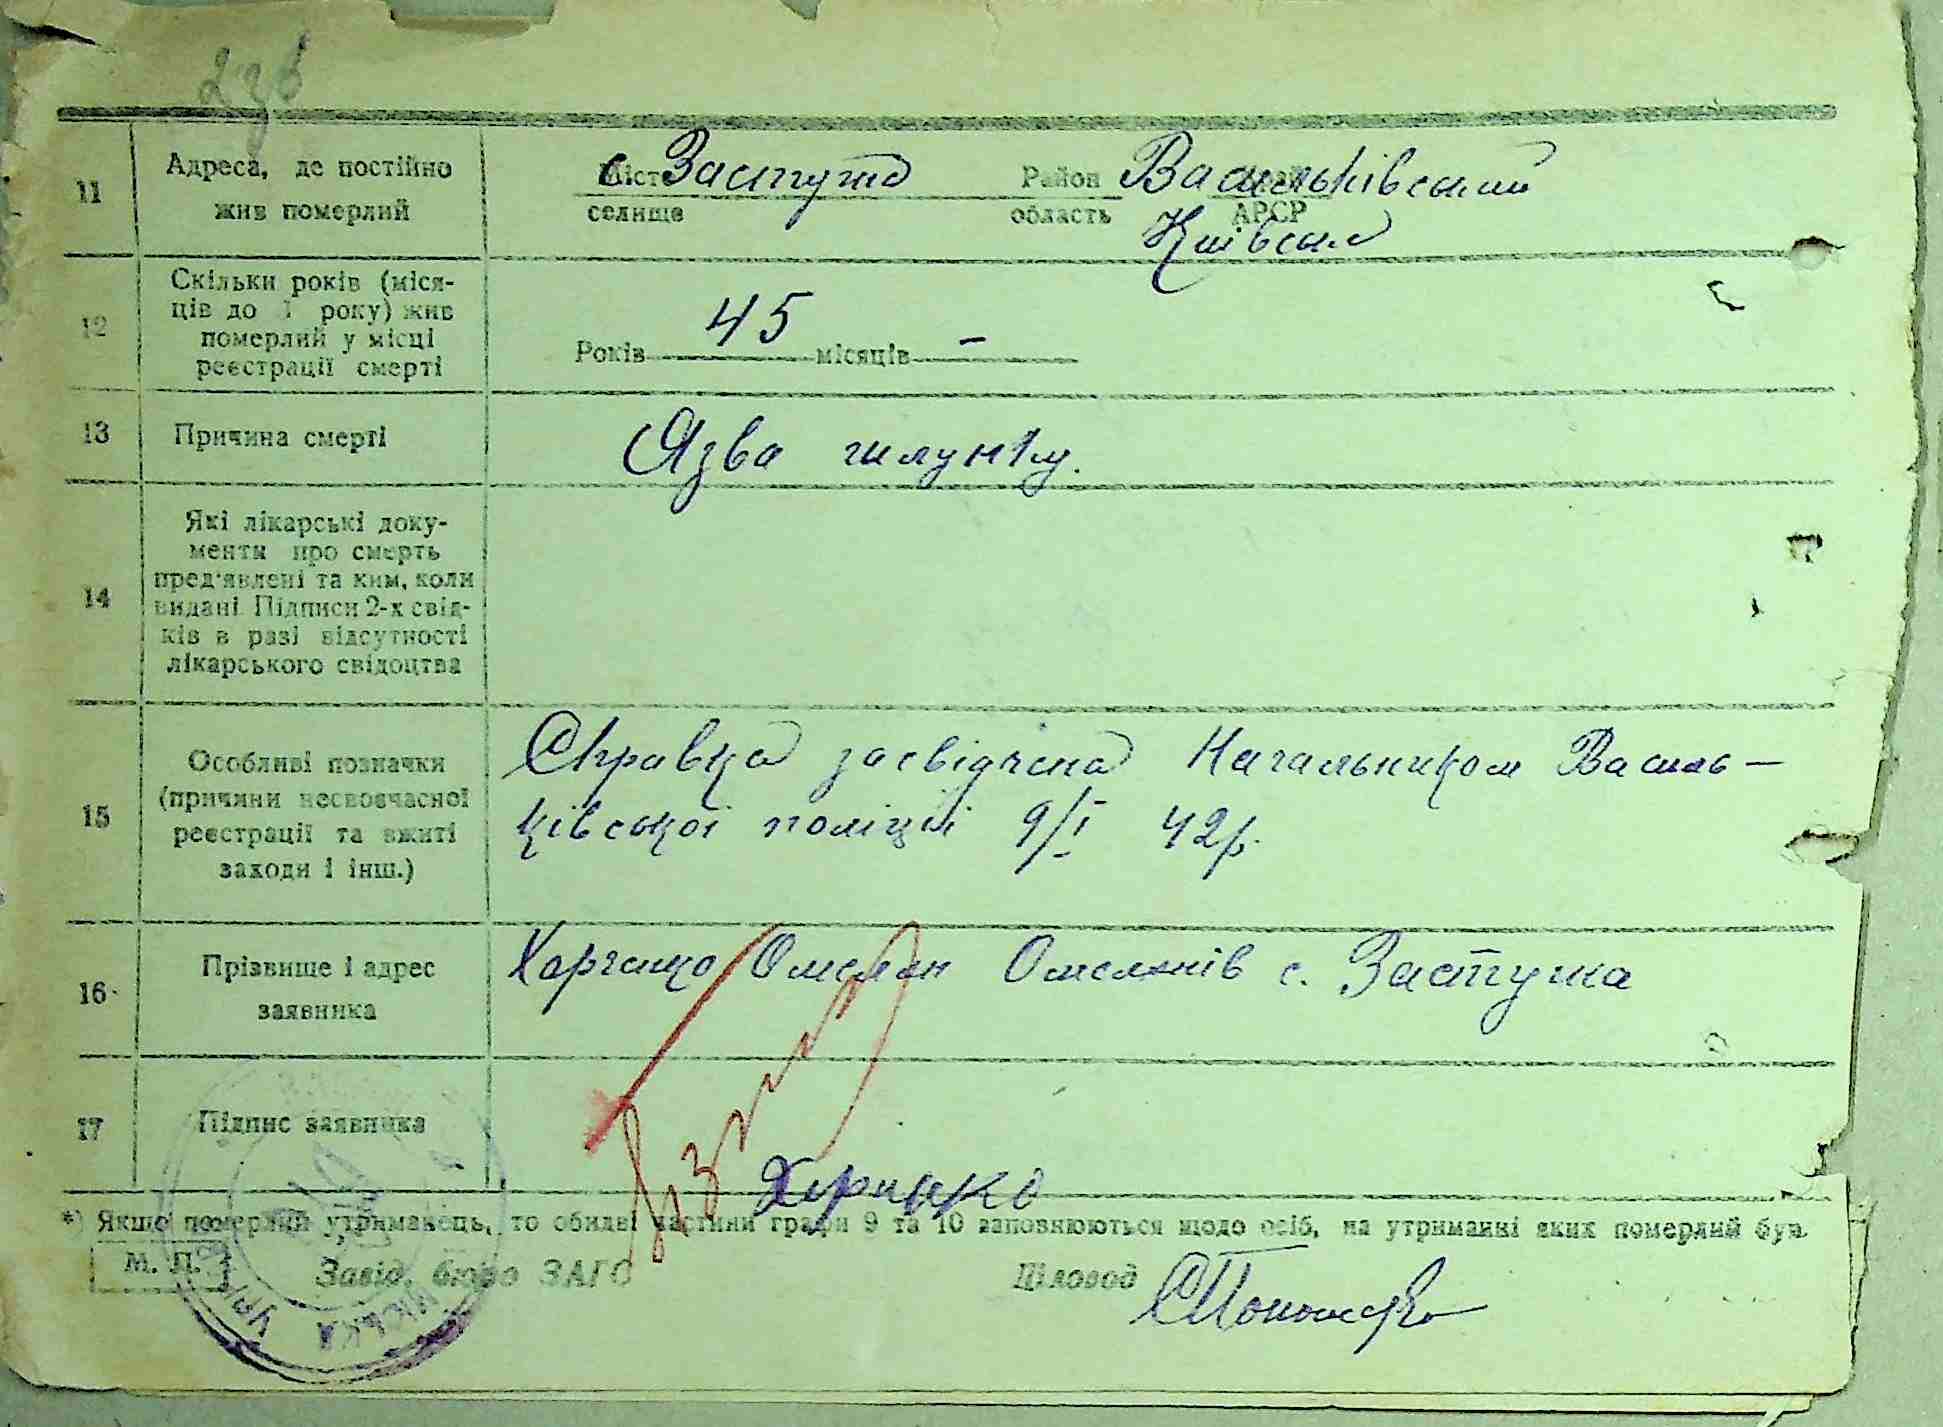 11
Адреса, де постійно
жив померлий
Місто
с. Застугна
селище
Район Васильківський
область
АРСР
Київська
12
Скільки років (міся-
ців до 1 року) жив
померлий у місці
реєстрації смерті
Років 45 місяців –
13
Причина смерті
Язва шлунку.
14
Які лікарські доку-
менти про смерть
пред'явлені та ким, коли
видані. Підписи 2-х свід-
ків в разі відсутності
лікарського свідоцтва
15
Особливі позначки
(причини несвоєчасної
реєстрації та вжиті
заходи і інш.)
Справка засвідчена Начальником Василь-
ківської поліції 9/I 42р.
16
Прізвище і адрес
заявника
Харченко Омелян Омелянів с. Застугна
17
Підпис заявника
Харченко
*) Якщо померлий утриманець, то обидві частини графи 9 та 10 заповнюються щодо осіб, на утриманні яких померлий був.
М. П.
Завід. бюро ЗАГС
Діловод